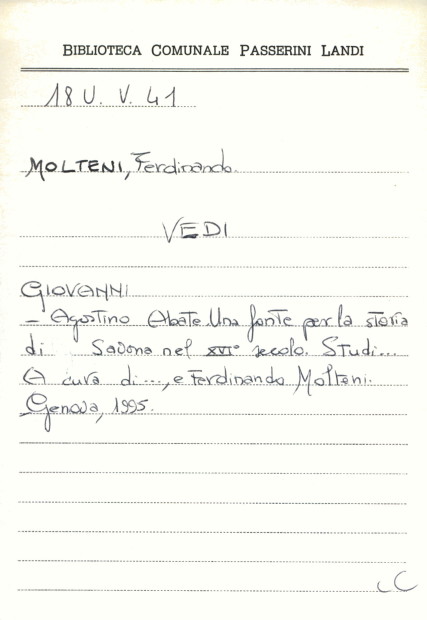 BIBLIOTECA COMUNALE PASSERINI LANDI
18 U. V. 41
MOLTENI, Ferdinando.
VEDI
GIOVANNI
- Agostino Abate. Una fonte per la storia
di Savona nel XVI° secolo. Studi...
A cura di ..., e Ferdinando Molteni.
Genova, 1995.